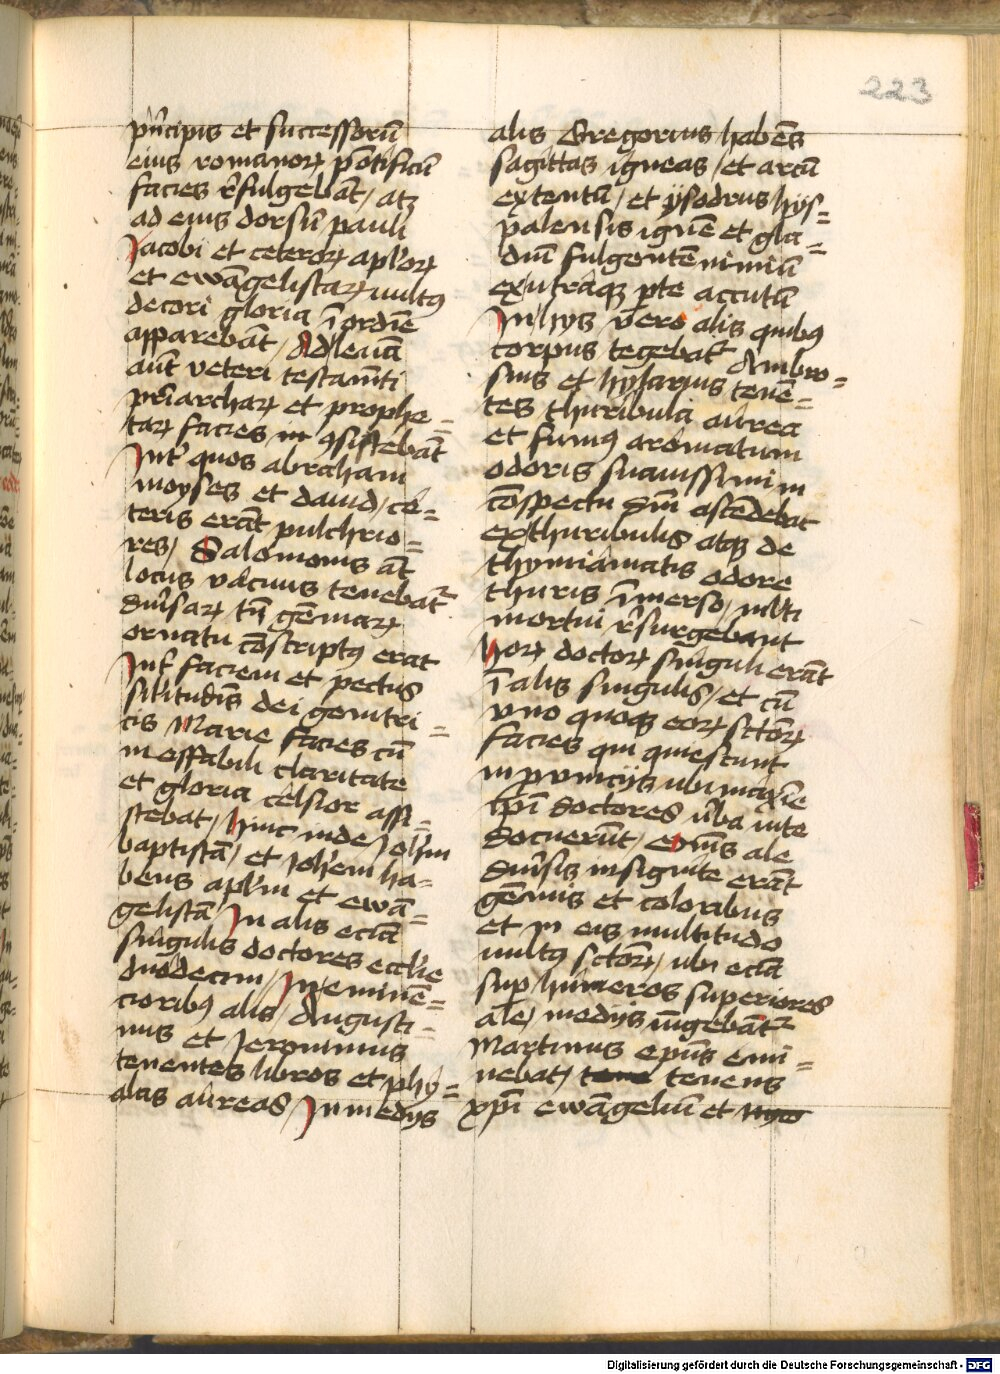 223
p͛ncipis et successorū
eius romanoꝝ pōtificū
facies r͛fulgebāt / atꝫ
ad eius dorsū pauli
Jacobi et ceteroꝝ apl'oꝝ
et ewāgelistaꝝ uultꝯ
decori gloria ī ordīe
apparebāt / Ad leuā
aūt veteri testamēti
pr͛iarchaꝝ et prophe=
taꝝ facies ꝯsistebāt
Int͛ quos abraham
moyses et dauid / ce=
teris erāt pulchrio=
res / Salomonis āt
locus vacuus tenebat᷑
diu͛saꝝ tn̄ gēmaꝝ
ornatu cōscriptꝯ erat
Int͛ faciem et pectus
silitudīs dei genitri=
cis Marie facies cū
ineffabili claritate
et gloria celsior assi=
stebat / hinc inde Joh'em
baptistā / et Joh'em ha=
bens apl'm et ewā=
gelistā / In alis eciā
singulis doctores eccl'ie
duodecim / In eminē=
cioribꝯ alis / Augusti=
nus et Jeronimus
tenentes libros et phy=
alas aureas / In medys
alis Gregorius habēs
sagittas igneas / et arcū
extentū / et ysodrus hys=
palensis ignē et gla=
diū fulgentē nimiū
ex utraqꝫ p̱te accutū
In hys v͛ero alis quibꝯ
corpus tegebat᷑ Ambro=
sius et hylarius tenē=
tes thuribula aurea
et fumꝯ aromatum
odoris suauissimi in
cōspectu dn̄i ascēdebat
ex thuribulis atqꝫ de
thymiamatis odore
thuris īmerso / m̄lti
mortui r͛surgebant
hoꝝ doctoꝝ singuli erāt
ī alis singulis / et cū
vno quoqꝫ eoꝝ sctōꝝ
facies qui quiescunt
in prouincijs ubi maxīe
xp̄i doctores u͛ba uite
docuerūt / Om̄s ale
diu͛sis insignite erāt
gēmis et coloribus
et in eis multitudo
uultꝯ sctōꝝ / ubi eciā
sup̱ humeros superiores
ale / medijs iūgebāt᷑
Martinus ep̄us emi=
nebat / tenens
xp̄i ewāgeliū et
Digitalisierung gefördert durch die Deutsche Forschungsgemeinschaft - DFG